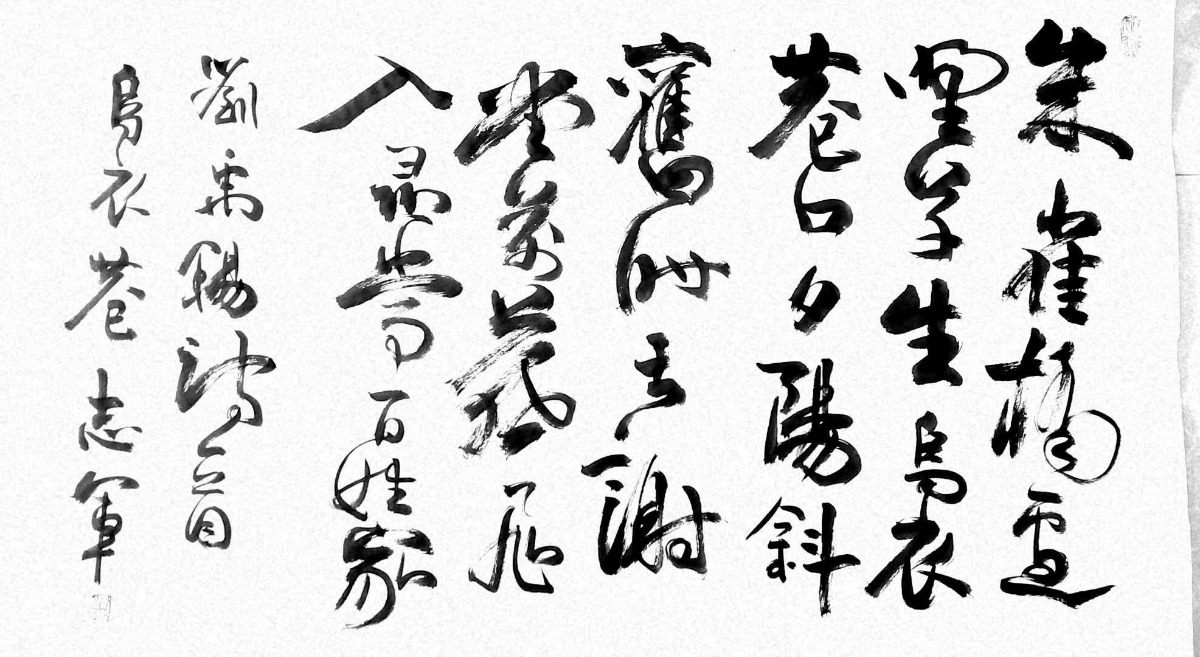 朱雀橋邊
野草生烏衣
巷口夕陽斜
舊時王謝
堂前燕飛
入尋常百姓家
劉禹錫詩一首
烏衣巷志軍